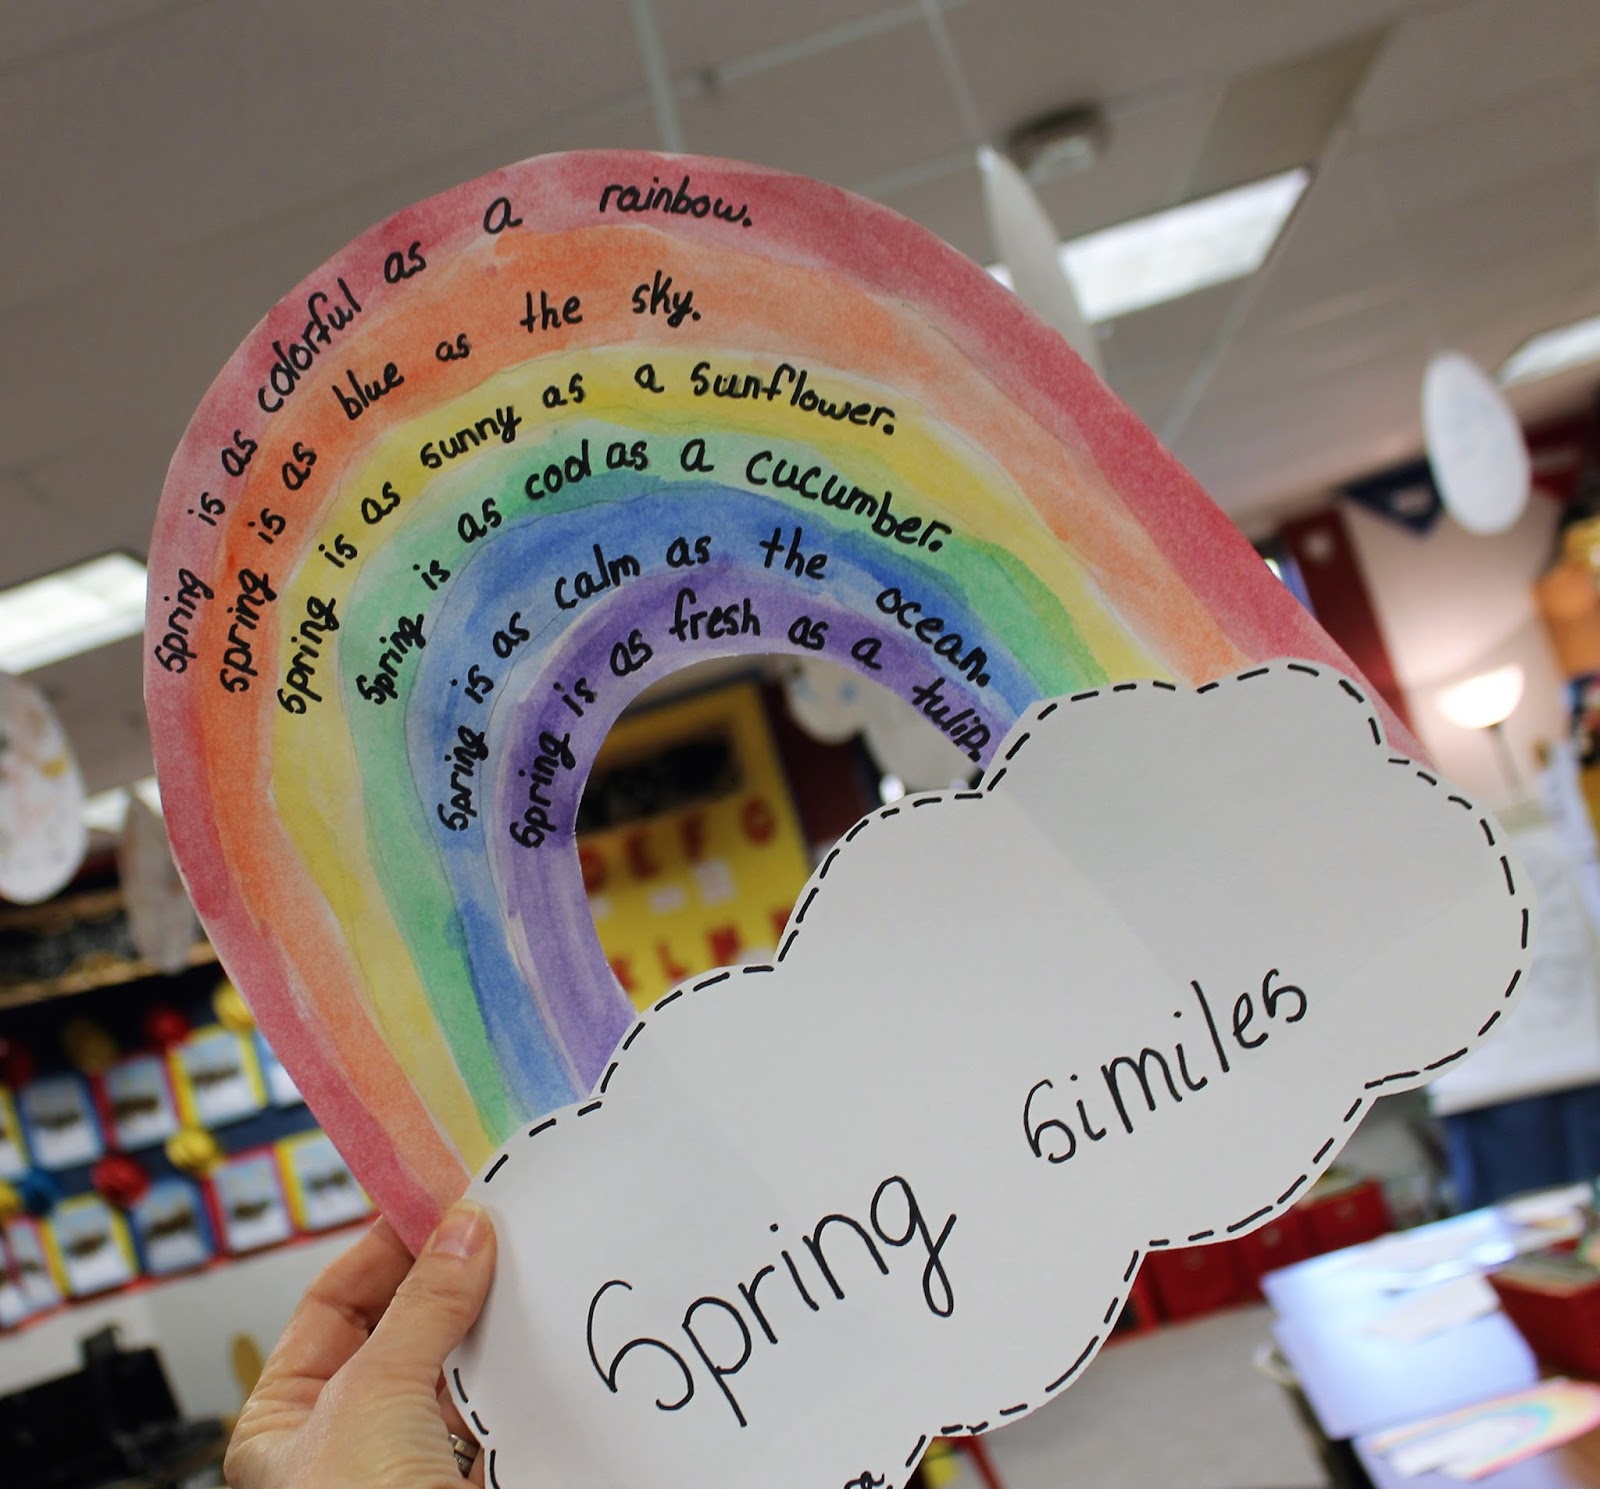 Spring is as colorful as a rainbow.
spring is as blue as the sky.
Spring is as sunny as a sunflower.
Spring is as cool as a cucumber.
Spring is as calm as the ocean.
Spring is as fresh as a tulip.
Spring Similes
E F G
L M